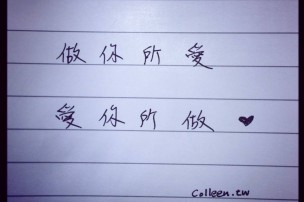 做你所愛
愛你所做 ♥
Colleen.tw